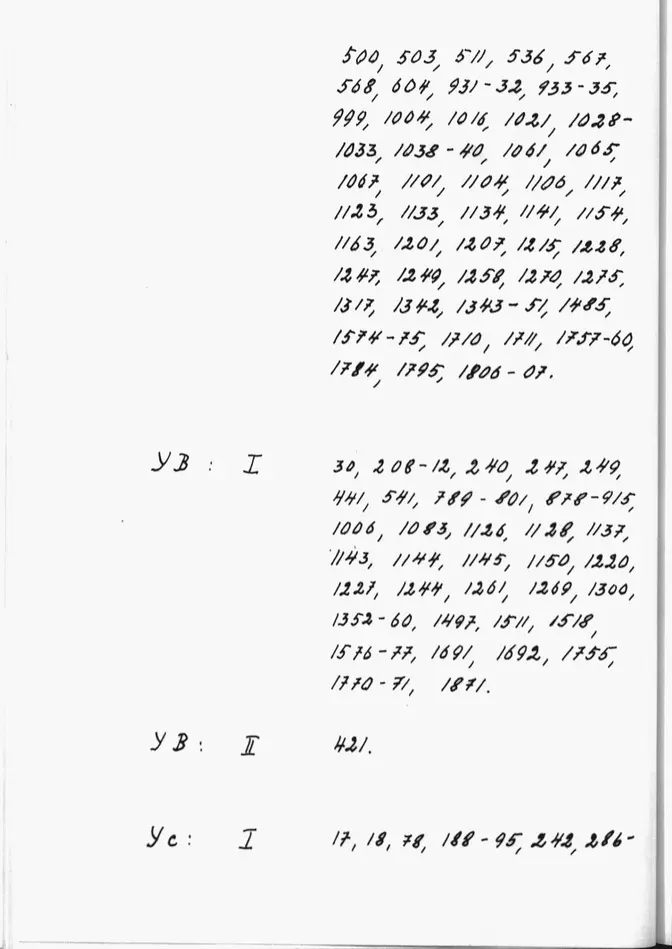 500, 503, 511, 536, 567,
568, 604, 931-32, 933-35,
999, 1004, 1016, 1021, 1028-
1033, 1038-40, 1061, 1065,
1067, 1101, 1104, 1106, 1117,
1123, 1133, 1134, 1141, 1154,
1163, 1201, 1207, 1215, 1228,
1247, 1249, 1258, 1270, 1275,
1317, 1342, 1343-51, 1485,
1574-75, 1710, 1711, 1757-60,
1784, 1795, 1806-07.
УВ: I 30, 208-12, 240, 247, 249,
441, 541, 789-801, 878-915,
1006, 1083, 1126, 1128, 1137,
1143, 1144, 1145, 1150, 1220,
1227, 1244, 1261, 1269, 1300,
1352-60, 1497, 1511, 1518,
1576-77, 1691, 1692, 1755,
1770-71, 1871.
УВ: II 421.
Ус: I 17, 18, 78, 188-95, 242, 286-